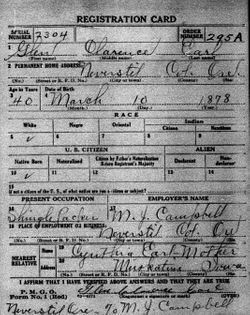 REGISTRATION CARD
SERIAL NUMBER 2304 ORDER NUMBER 295A
1 Glen Clarence Earl
(First name) (Middle name) (Last name)
2 PERMANENT HOME ADDRESS:
Neverstil Col. Ore
(No.) (Street or R. F. D. No.) (City or town) (County) (State)
Age in Years Date of Birth
40 March 10 1878
(Month) (Day) (Year)
RACE
White Negro Oriental Indian
Citizen Noncitizen
U. S. CITIZEN ALIEN
Native Born Naturalized Citizen by Father's Naturalization Before Registrant's Majority Declarant Non-declarant
10
15 If not a citizen of the U. S., of what nation are you a citizen or subject?
PRESENT OCCUPATION EMPLOYER'S NAME
Shingle Packer M. J. Campbell
18 PLACE OF EMPLOYMENT OR BUSINESS:
Neverstil Col. Ore
(No.) (Street or R. F. D. No.) (City or town) (County) (State)
NEAREST RELATIVE
Name Cynthia Earl-Mother
Address Muskatine Iowa
(No.) (Street or R. F. D. No.) (City or town) (County) (State)
I AFFIRM THAT I HAVE VERIFIED ABOVE ANSWERS AND THAT THEY ARE TRUE
P. M. G. O.
Form No. 1 (Red) Glen Clarence Earl
(Registrant's signature or mark)
Neverstil Ore. % M J Campbell